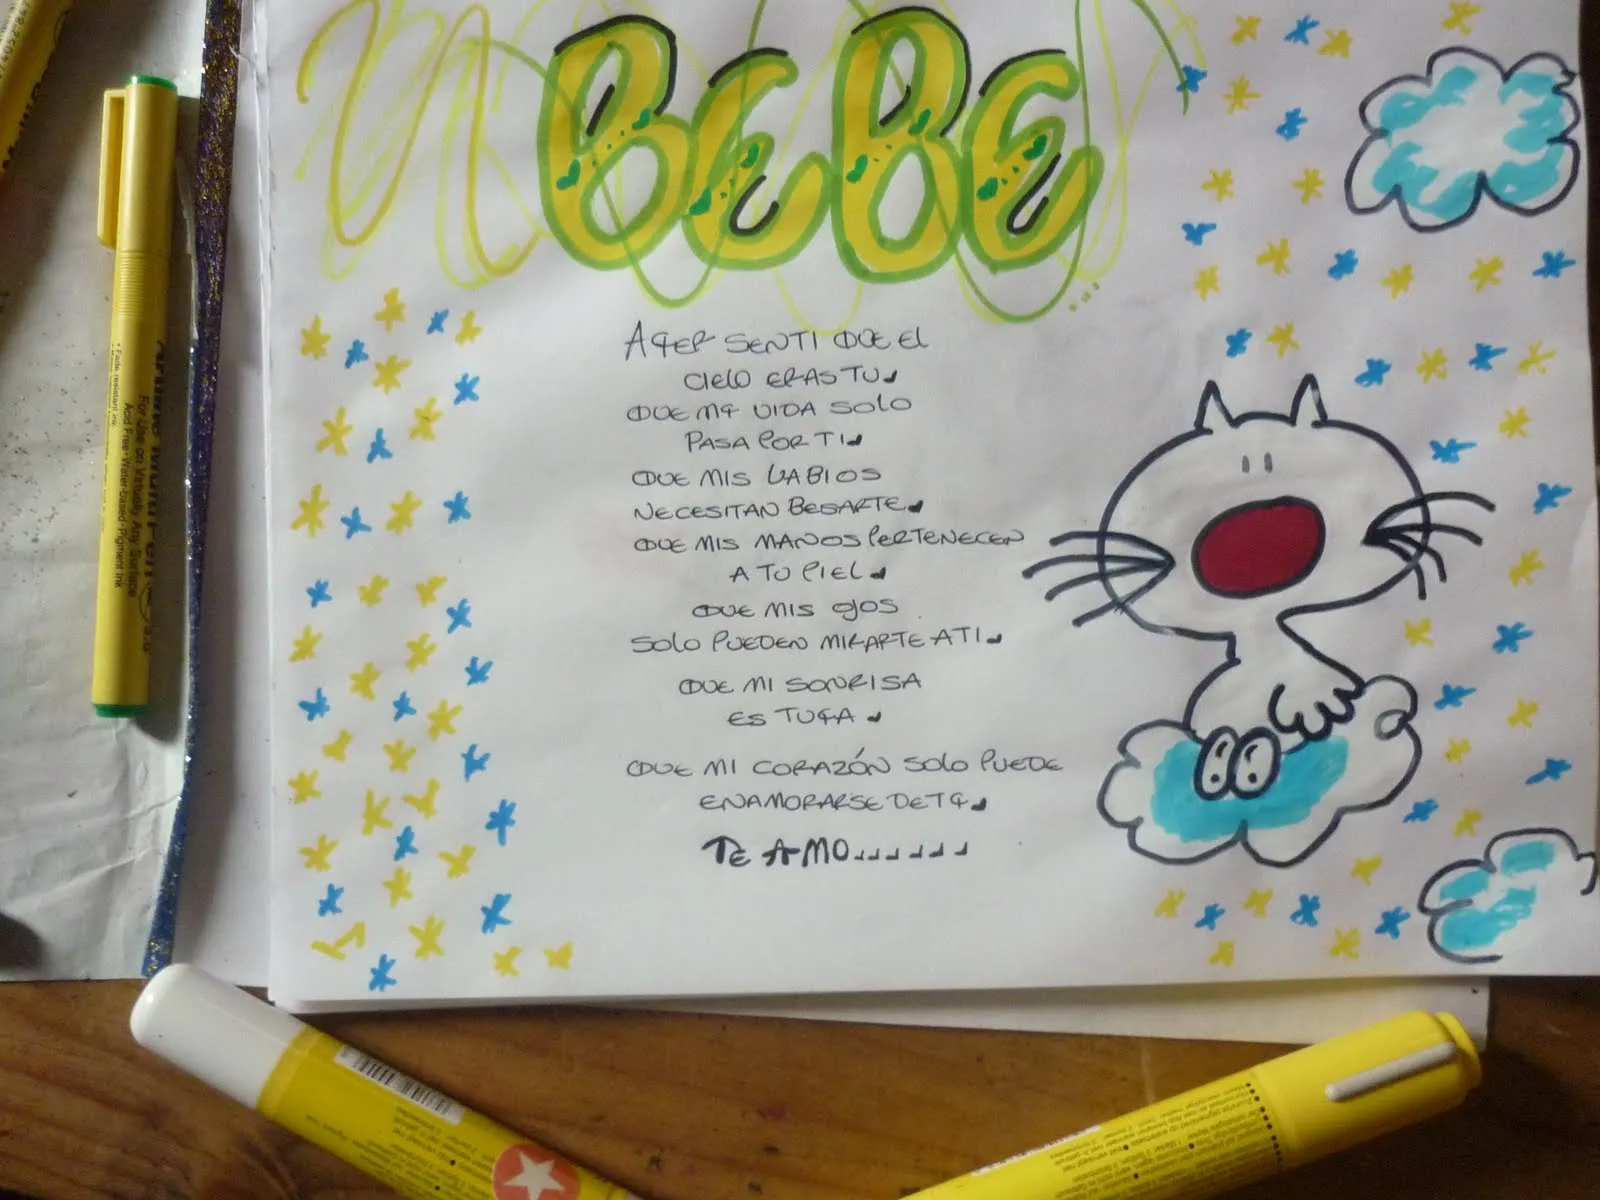 BEBE
AYER SENTI QUE EL
CIELO ERAS TU
QUE MY VIDA SOLO
PASA POR TI
QUE MIS LABIOS
NECESITAN BESARTE
QUE MIS MANOS PERTENECEN
A TU PIEL
QUE MIS OJOS
SOLO PUEDEN MIRARTE A TI
QUE MI SONRISA
ES TUYA
QUE MI CORAZÓN SOLO PUEDE
ENAMORARSE DE TY
TE AMO.......
For Use on Virtually Any Surface
Acid Free • Water-based • Pigment Ink
• Fade resistant ink